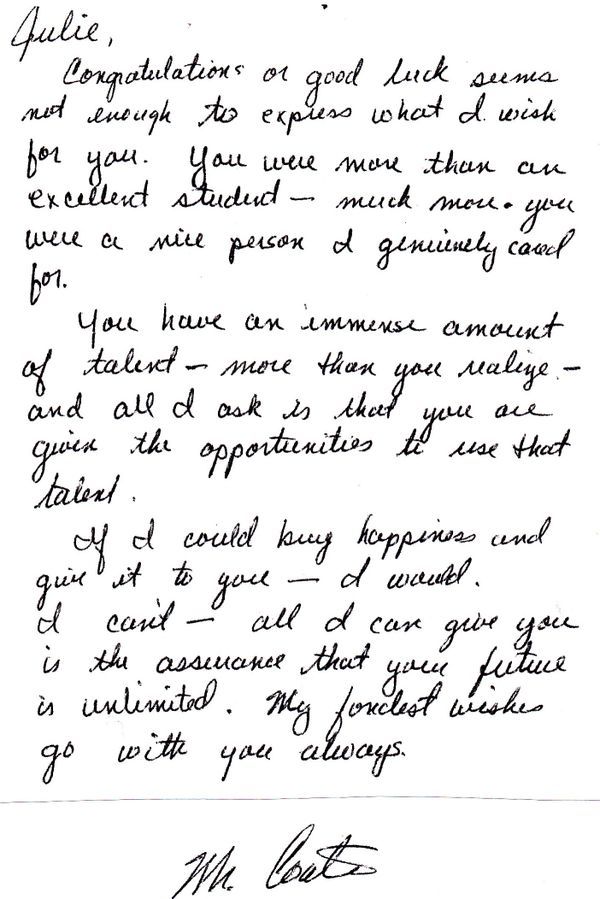 Julie,
Congratulations or good luck seems
not enough to express what I wish
for you. You were more than an
excellent student - much more. you
were a nice person I genuinely cared
for.
You have an immense amount
of talent - more than you realize -
and all I ask is that you are
given the opportunities to use that
talent.
If I could buy happiness and
give it to you - I would.
I can't - all I can give you
is the assurance that your future
is unlimited. My fondest wishes
go with you always.
Mr. Coats